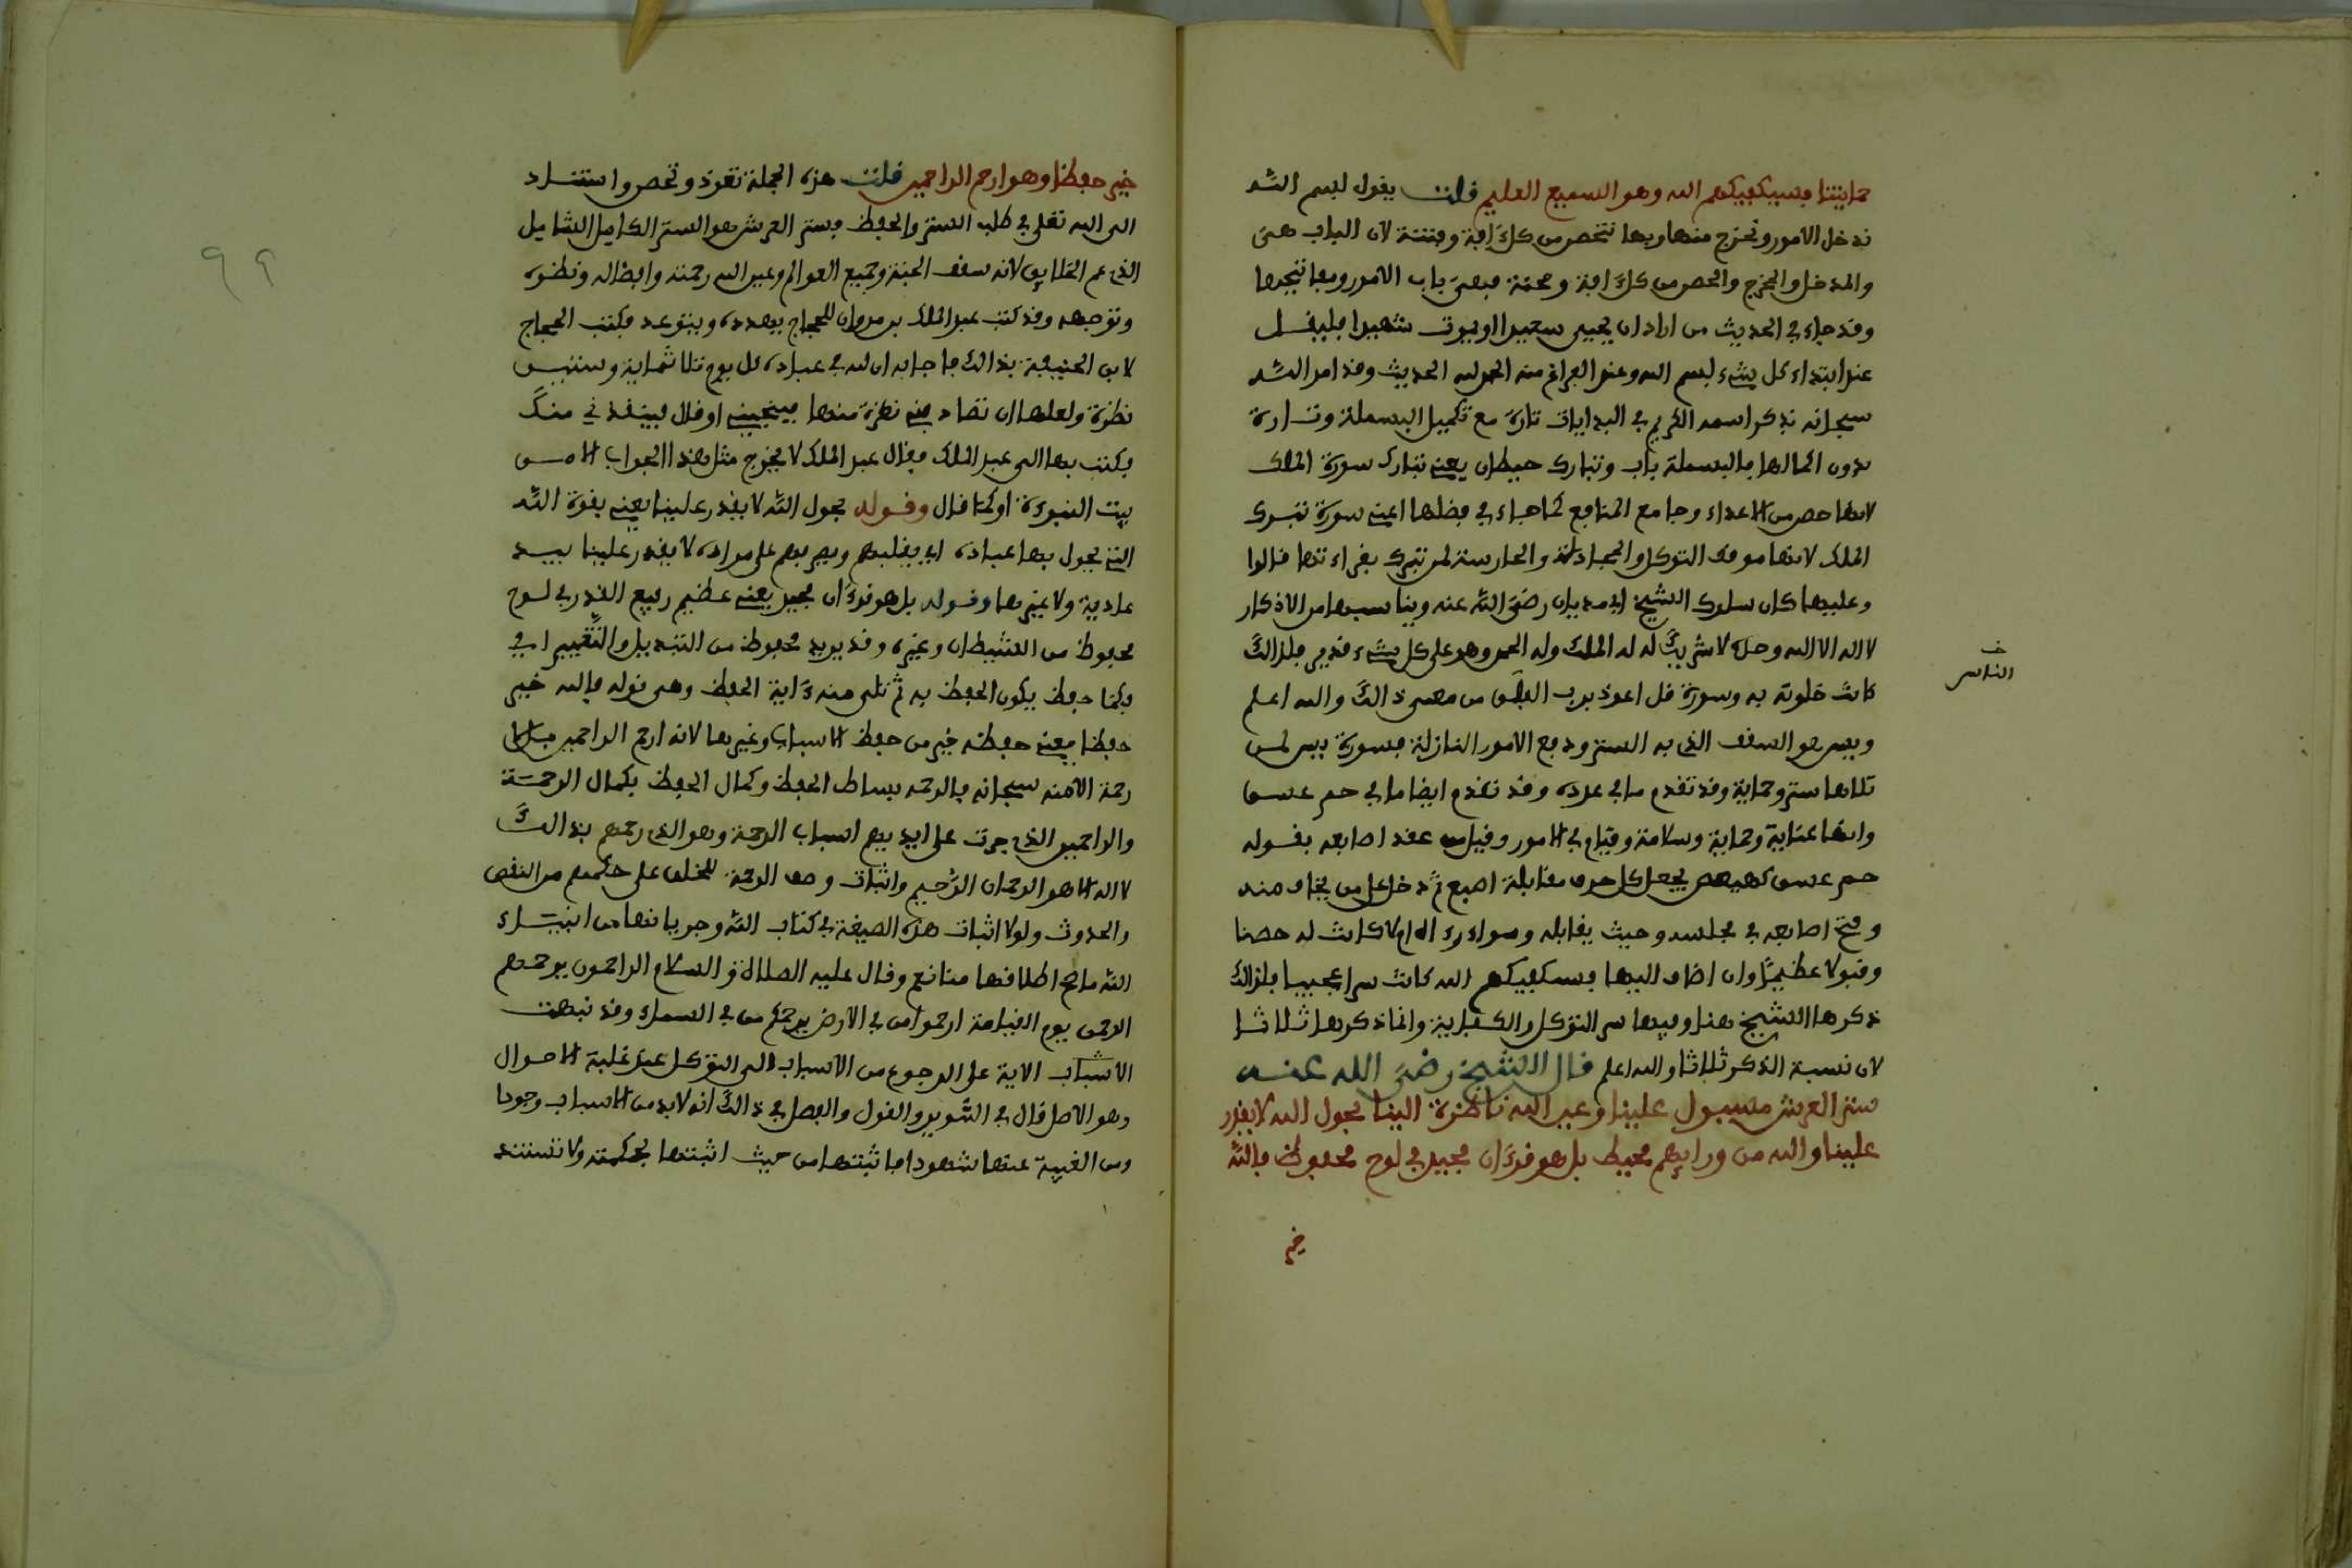 حمايتنا فسيكفيكهم الله وهو السميع العليم قلت يقول لبسم الله
ندخل الامور ونخرج منها وبها نتحصن من كل ءافة وفتنة لان الباب هى
والمدخل والمخرج والحصن من كل افة ومحنة فهى باب الامور ومفاتيحها
وقد جاء في الحديث من اراد ان يحيى سعيدا او يموت شهيدا فليقل
عند ابتداء كل شىء بسم الله وعند الفراغ منه الحمد لله الحديث وقد امر الله
سبحانه بذكر اسمه الكريم في البدايات تارة مع تكميل البسملة وتارة
بدون اكمالها فالبسملة باب وتبارك حيطان يعنى تبارك سورة الملك
لانها حصن من الاعداء وجامع المنافع كما جاء في فضلها اعنى سورة تبرك
الملك لانها موقف التوكل والمجادلة والحارسة لمن تبرك بقراءتها قالوا
وعليها كان سلوك الشيخ ابي مديان رضي الله عنه ويناسبها من الاذكار
لا اله الا الله وحده لا شريك له له الملك وله الحمد وهو على كل شىء قدير فلذالك
كانت خلوته به وسورة قل اعوذ برب الفلق من معنى ذالك والله اعلم
خـ
الناس
ويس هو السقف الذي به الستر ودفع الامور النازلة فسورة يس لمن
تلاها ستر وحماية وقد تقدم ما في عدده وقد تقدم ايضا ما في حم عسق
وانها عناية وحماية وسلامة وقيام في الامور وقيل من عقد اصابعه بقوله
حم عسق كهيعص يجعل كل حرف مقابلة اصبع ثم دخل على من يخاف منه
وفتح اصابعه في مجلسه وحيث يقابله كانت له حصنا
وقبولا عظيما وان اضاف اليها فسيكفيكهم الله كانت سرا عجيبا فلذالك
ذكرها الشيخ هنا وفيها سر التوكل والكفاية وانما ذكرها ثلاثا
لان نسبة الذكر ثلاثا والله اعلم قال الشيخ رضي الله عنه
ستر العرش مسبول علينا وعين الله ناظرة الينا بحول الله لا يقدر
علينا والله من ورايهم محيط بل هو قرءان مجيد في لوح محفوظ فالله
خير
خير حفظا وهو ارحم الراحمين قلت هذه الجملة تعوذ وتحصن واستناد
الى الله تعلى في طلب الستر والحفظ فستر العرش هو الستر الكامل الشامل
الذي عم الخلايق لانه سقف الجنة وجميع العوالم وعين الله رحمته وافضاله ونظره
وتوجهه وقد كتب عبد الملك بن مروان للحجاج يهدده ويتوعد فكتب الحجاج
لابن الحنيفة بذالك فاجابه ان لله في عباده كل يوم ثلاثماية وستين
نظرة ولعلها ان تصادفني نظرة منها فينجيني او قال فينقذني منك
فكتب بها الى عبد الملك فقال عبد الملك لا يخرج مثل هذا الجواب الا من
بيت النبوءة او كما قال وقوله بحول الله لا يقدر علينا يعني بقوة الله
التي يحول بها عباده اي يقلبهم ويصرفهم على مراده لا يقدر علينا بيد
عادية ولا غيرها وقوله بل هو قرءان مجيد يعني عظيم رفيع القدر في لوح
محفوظ من الشيطان وغيره وقد يريد محفوظ من التبديل والتغيير اي
فكما حفظ يكون الحفظ به ثم تلى منه ءاية الحفظ وهى قوله فالله خير
حفظا فمعنى حفظه خير من حفظ الاسباب وغيرها لانه ارحم الراحمين فلا
رحمة الا منه سبحانه فالرحمة بساط الحفظ وكمال الحفظ بكمال الرحمة
والراحمين الذي جرت على ايديهم اسباب الرحمة وهو الذي رحمهم بذالك
لا اله الا هو الرحمان الرحيم واثبات وصف الرحمة للخلق على حكمهم من النقص
والحدوث ولولا اثبات هذه الصيغة في كتاب الله وجريانها من انبياء
الله ما صح اطلاقها وقال عليه الصلاة والسلام الراحمون يرحمهم
الرحمن يوم القيامة ارحموا من في الارض يرحمكم من في السماء وقد نبهت
الاشباب الاية على الرجوع من الاسباب الى التوكل عند غلبة الاحوال
وهو الاصل قال في التنوير والقول والفصل في ذالك انه لابد من الاسباب وجودا
ومن الغيبة عنها شهودا فاثبتها من حيث اثبتها بحكمته ولا تستند
٩٩